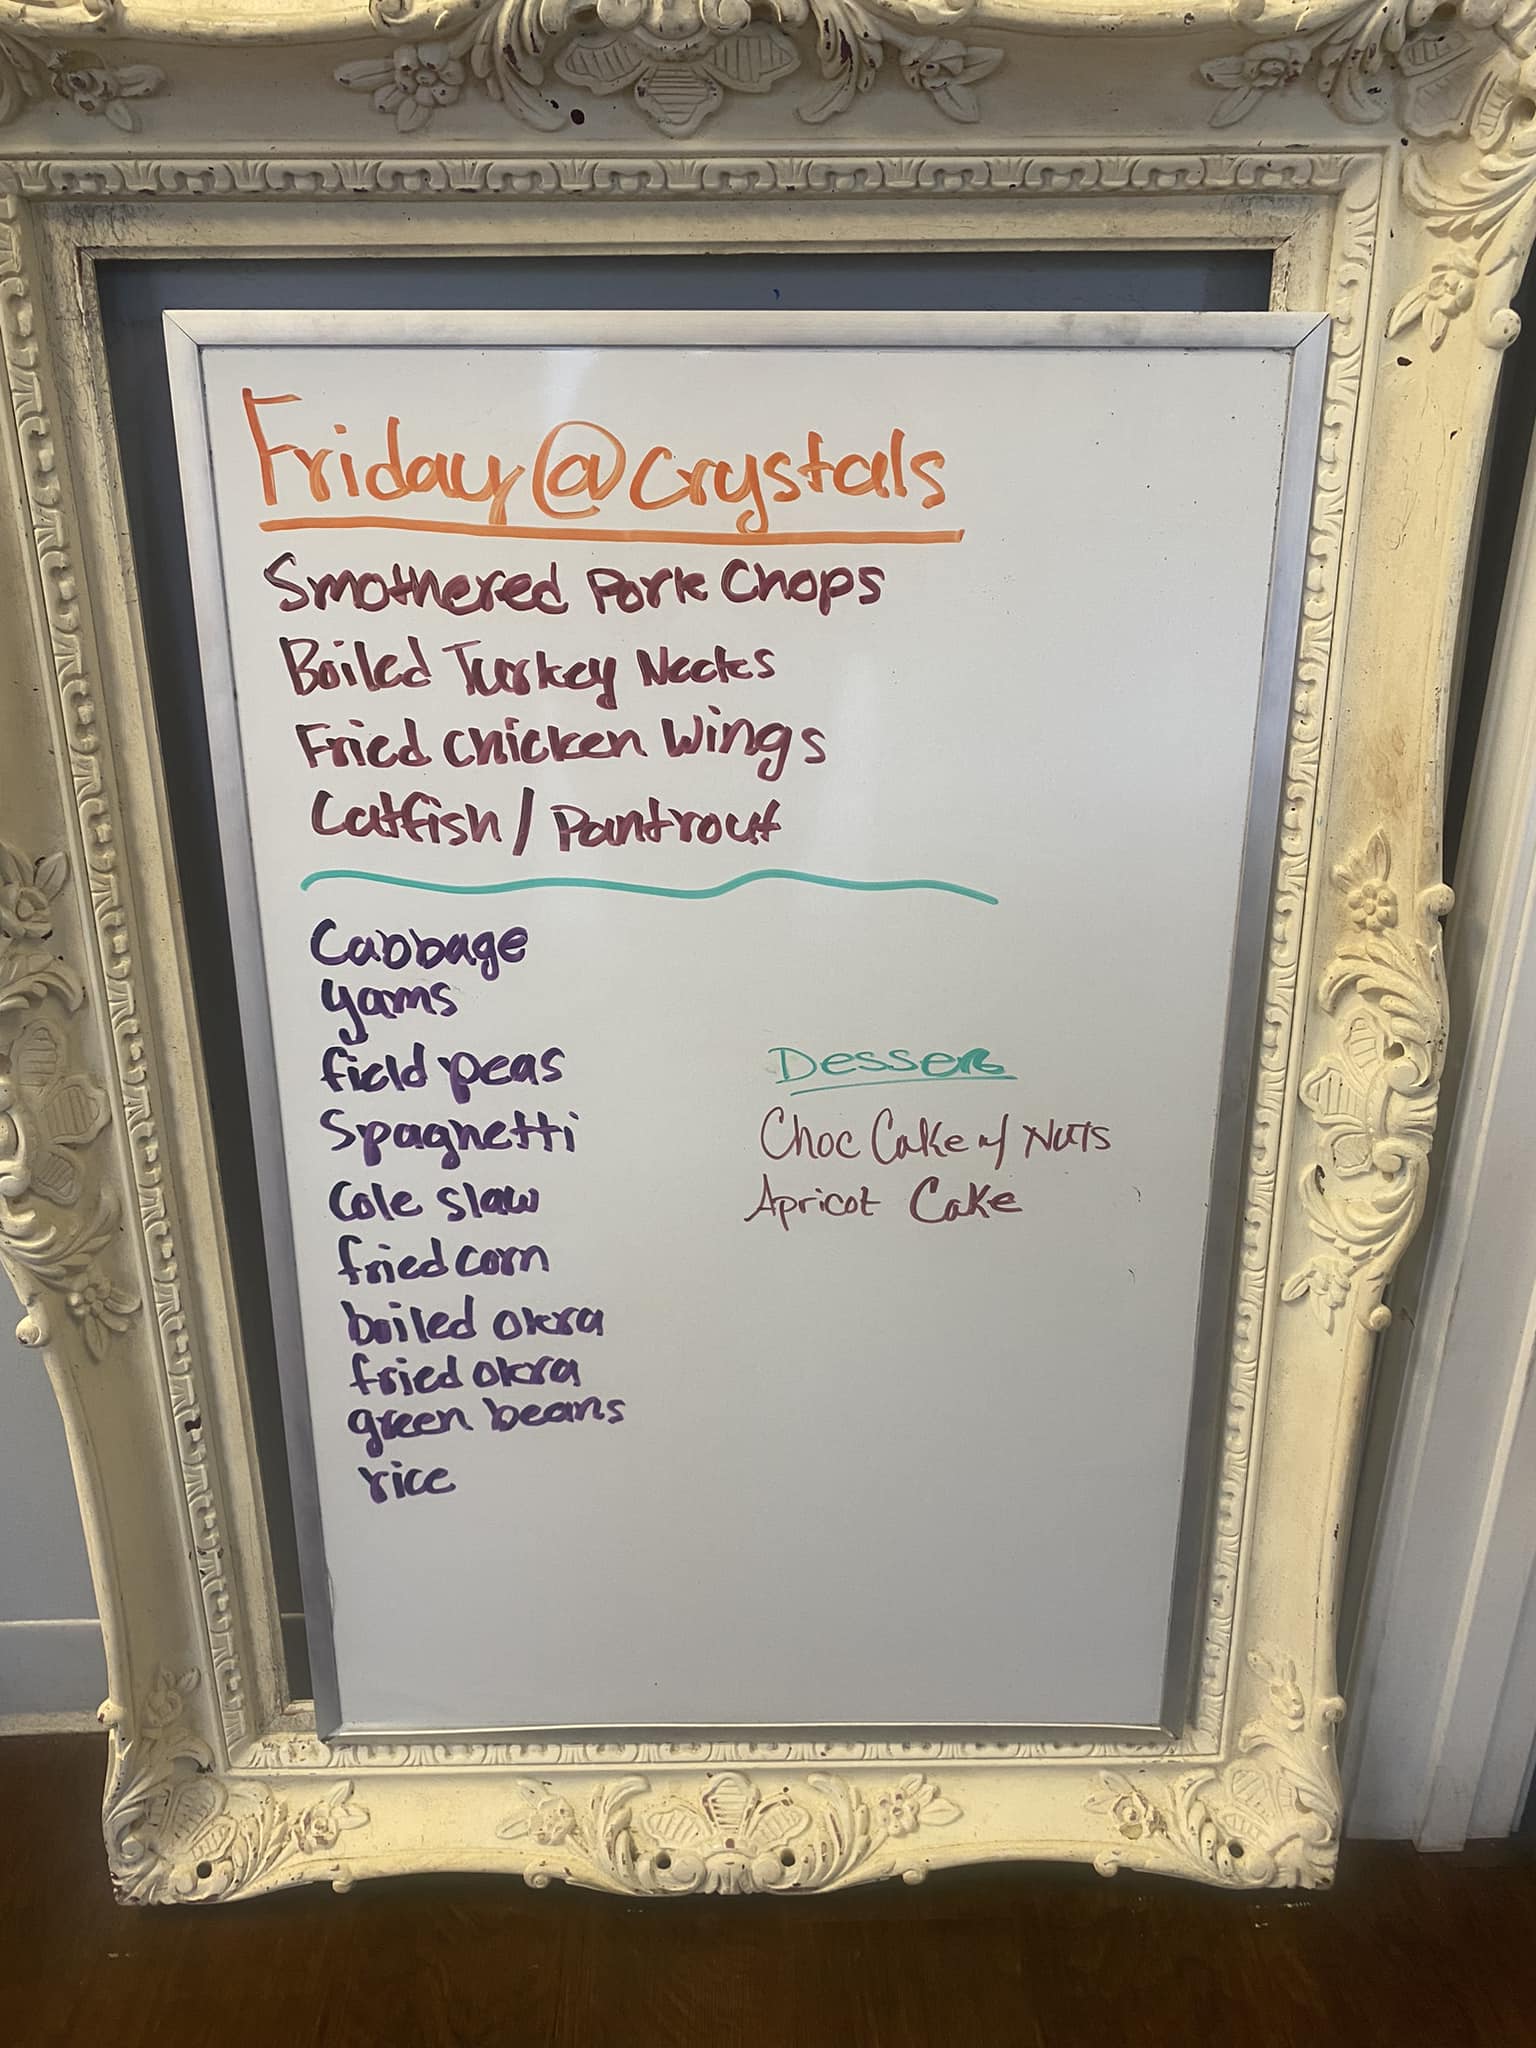 Friday @ Crystals
Smothered Pork Chops
Boiled Turkey Necks
Fried Chicken Wings
Catfish / Pantrout
Cabbage
yams
field peas
Spaghetti
Cole slaw
fried corn
boiled okra
fried okra
green beans
rice
Dessert
Choc Cake w/ Nuts
Apricot Cake